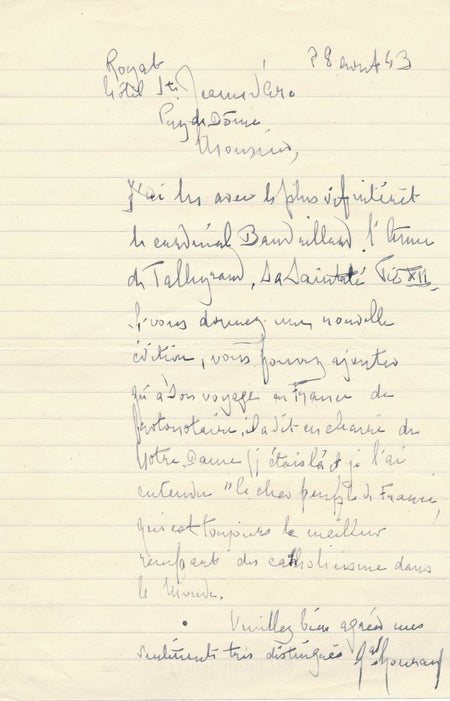 Royat 28 août 43
hôtel Ste Jeanne d'Arc
Puy de Dôme
Monsieur,
J'ai lu avec le plus vif intérêt
le cardinal Baudrillard, l'
de Talleyrand, Sa Sainteté Pie XII.
Si vous donnez une nouvelle
édition, vous pouvez ajouter
qu'à son voyage en France de
protonotaire, il a dit en chaire de
Notre Dame (j'étais là & je l'ai
entendu "le cher peuple de France,
qui est toujours le meilleur
rempart du catholicisme dans
le Monde.
Veuillez bien agréer mes
sentiments très distingués